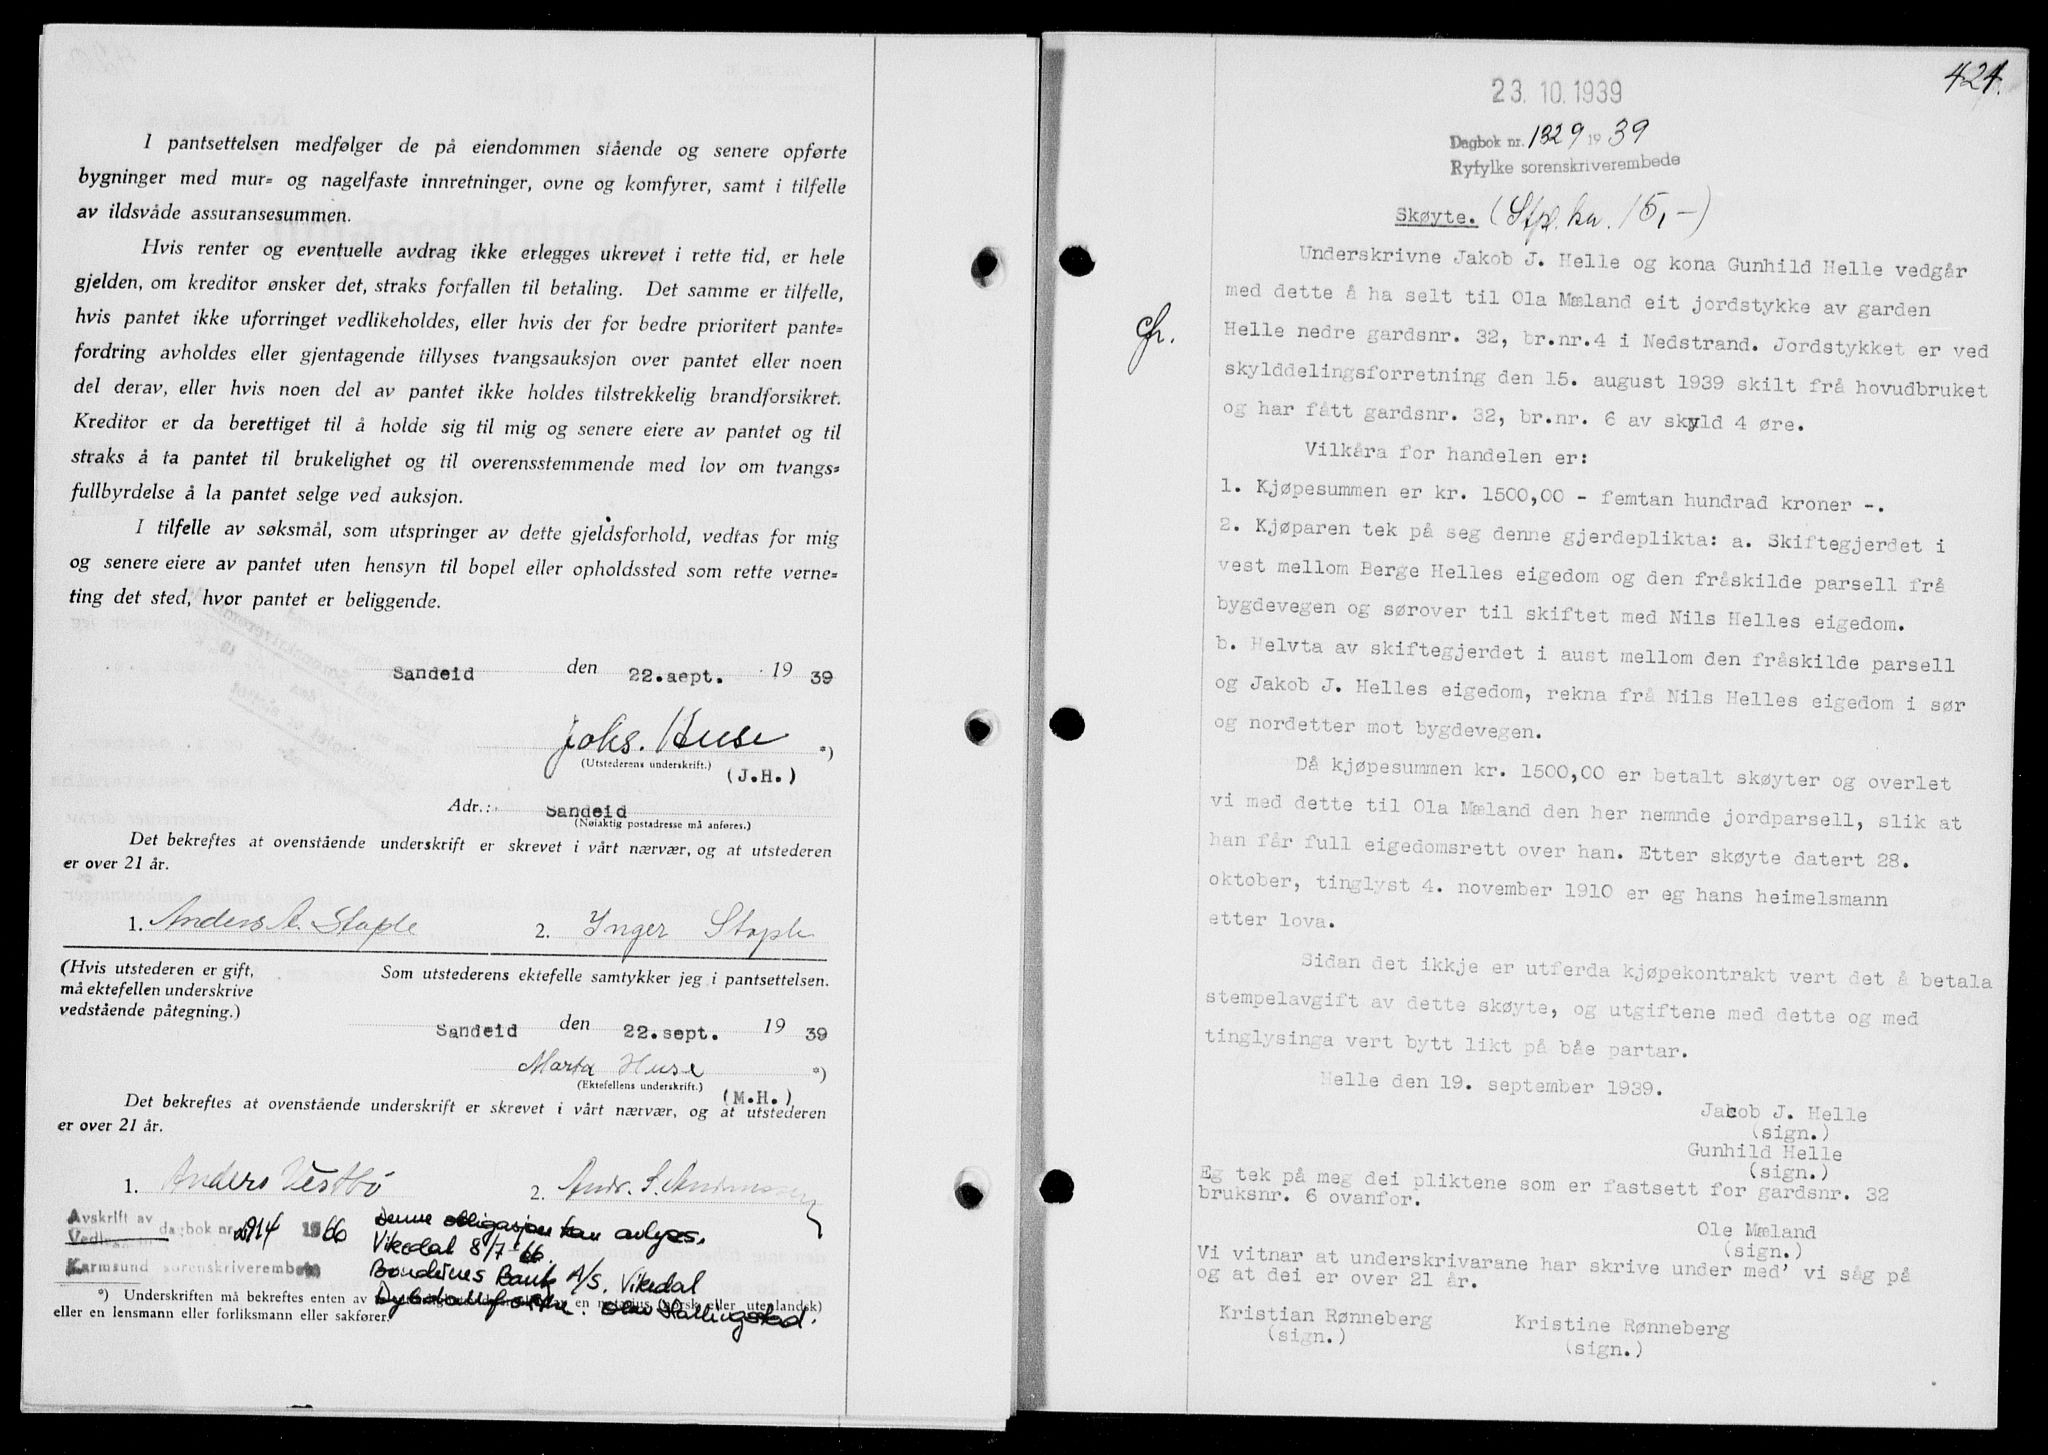 I pantsettelsen medfølger de på eiendommen stående og senere opførte
bygninger med mur= og nagelfaste innretninger, ovne og komfyrer, samt i tilfelle
av ildsvåde assuransesummen.
Hvis renter og eventuelle avdrag ikke erlegges ukrevet i rette tid, er hele
gjelden, om kreditor ønsker det, straks forfallen til betaling. Det samme er tilfelle,
hvis pantet ikke uforringet vedlikeholdes, eller hvis der for bedre prioritert pante=
fordring avholdes eller gjentagende tillyses tvangsauksjon over pantet eller noen
del derav, eller hvis noen del av pantet ikke holdes tilstrekkelig brandforsikret.
Kreditor er da berettiget til å holde sig til mig og senere eiere av pantet og til
straks å ta pantet til brukelighet og til overensstemmende med lov om tvangs=
fullbyrdelse å la pantet selge ved auksjon.
I tilfelle av søksmål, som utspringer av dette gjeldsforhold, vedtas for mig
og senere eiere av pantet uten hensyn til bopel eller opholdssted som rette verne=
ting det sted, hvor pantet er beliggende.
Sandeid den 22.sept. 19 39
Johs. Huse *)
(Utstederens underskrift.)
(J.H.)
Adr.: Sandeid
(Nøiaktig postadresse må anføres.)
Det bekreftes at ovenstående underskrift er skrevet i vårt nærvær, og at utstederen
er over 21 år.
1. Anders A. Staple 2. Inger Staple
(Hvis utstederen er gift, Som utstederens ektefelle samtykker jeg i pantsettelsen.
må ektefellen underskrive
vedstående påtegning.)
Sandeid den 22.sept. 19 39
Marta Huse *)
(Ektefellens underskrift.)
(M.H.)
Det bekreftes at ovenstående underskrift er skrevet i vårt nærvær, og at utstederen
er over 21 år.
1. Anders Vestbø 2. Andr. S.
Avskrift av
Vedlegg til dagbok nr. 2914 1966
Karmsund sorenskriverembete
Denne obligasjon kan avlyses.
Vikedal 8/7-66.
Bøndernes Bank A/S. Vikedal
*) Underskriften må bekreftes enten av en notarius (norsk eller utenlandsk)
eller en lensmann eller forliksmann eller sakfører.
424.
23. 10. 1939
Dagbok nr. 1329 1939
Ryfylke sorenskriverembede
Skøyte. (Stpl. kr. 15,-)
Underskrivne Jakob J. Helle og kona Gunhild Helle vedgår
med dette å ha selt til Ola Mæland eit jordstykke av garden
cfr.
Helle nedre gardsnr. 32, br.nr.4 i Nedstrand. Jordstykket er ved
skylddelingsforretning den 15. august 1939 skilt frå hovudbruket
og har fått gardsnr. 32, br.nr. 6 av skyld 4 øre.
Vilkåra for handelen er:
1. Kjøpesummen er kr. 1500,00 - femtan hundrad kroner -.
2. Kjøparen tek på seg denne gjerdeplikta: a. Skiftegjerdet i
vest mellom Berge Helles eigedom og den fråskilde parsell frå
bygdevegen og sørover til skiftet med Nils Helles eigedom.
b. Helvta av skiftegjerdet i aust mellom den fråskilde parsell
og Jakob J. Helles eigedom, rekna frå Nils Helles eigedom i sør
og nordetter mot bygdevegen.
Då kjøpesummen kr. 1500,00 er betalt skøyter og overlet
vi med dette til Ola Mæland den her nemnde jordparsell, slik at
han får full eigedomsrett over han. Etter skøyte datert 28.
oktober, tinglyst 4. november 1910 er eg hans heimelsmann
etter lova.
Sidan det ikkje er utferda kjøpekontrakt vert det å betala
stempelavgift av dette skøyte, og utgiftene med dette og med
tinglysinga vert bytt likt på båe partar.
Helle den 19. september 1939.
Jakob J. Helle
(sign.)
Gunhild Helle
(sign.)
Eg tek på meg dei pliktene som er fastsett for gardsnr. 32
bruksnr. 6 ovanfor.
Ole Mæland
(sign.)
Vi vitnar at underskrivarane har skrive under med' vi såg på
og at dei er over 21 år.
Kristian Rønneberg Kristine Rønneberg
(sign.) (sign.)